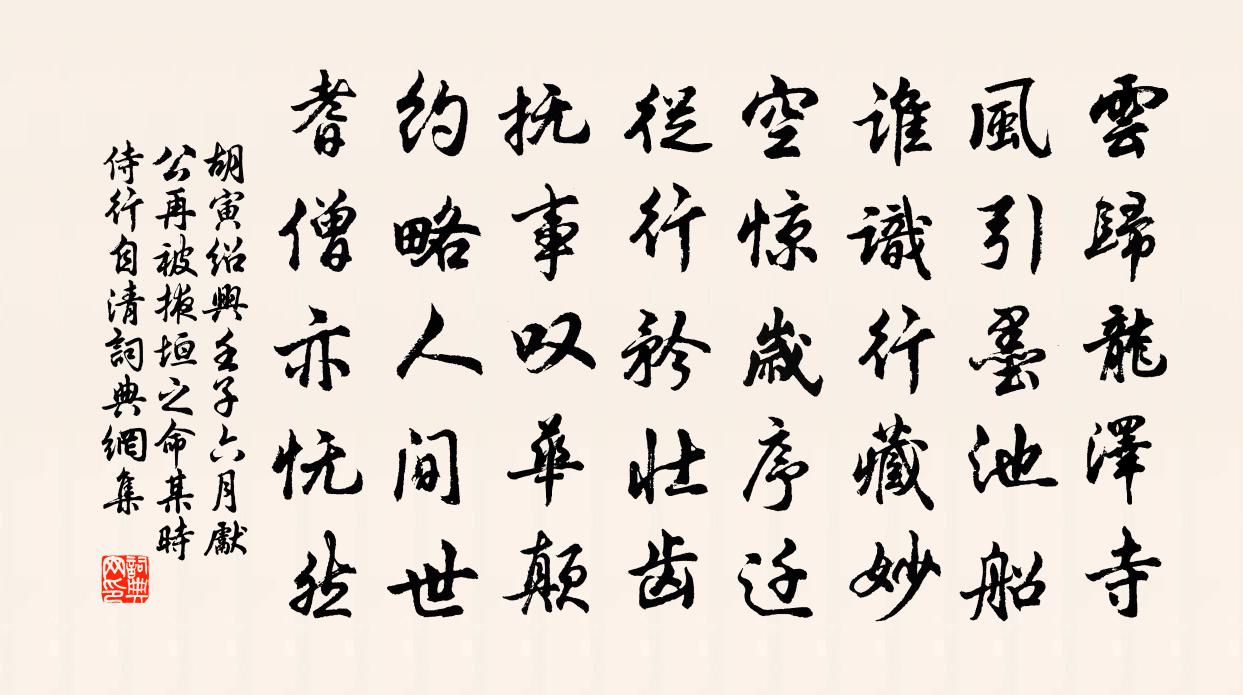 雲歸龍澤寺
風引墨池船
誰識行藏妙
空惊歲序迁
從行矜壯齿
抚事叹華颠
約略人间世
耆僧亦怃然
胡寅绍興壬子六月獻
公再被掖垣之命某時
侍行自清詞典網集
詞典网印